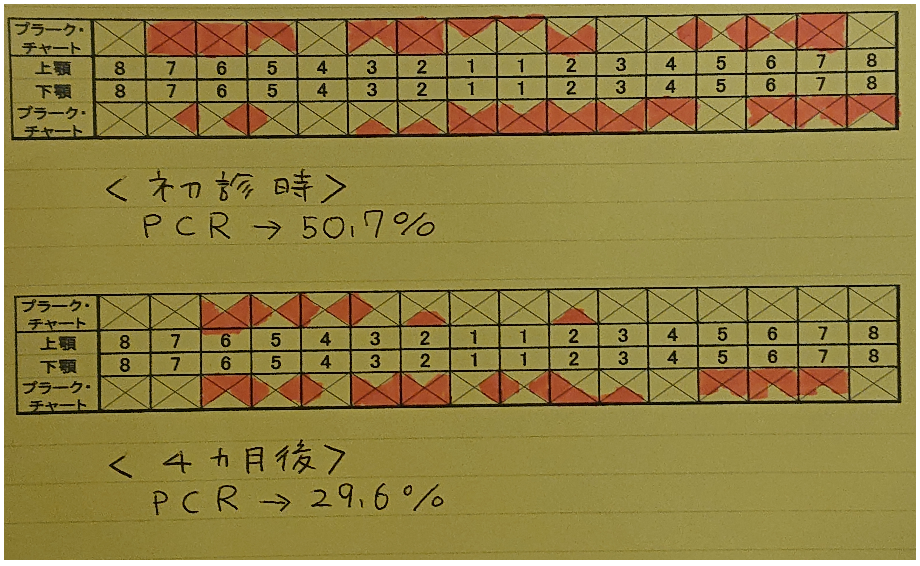 プラーク・
チャート
上顎 8 7 6 5 4 3 2 1 1 2 3 4 5 6 7 8
下顎 8 7 6 5 4 3 2 1 1 2 3 4 5 6 7 8
プラーク・
チャート
<初診時>
PCR→50.7%
プラーク・
チャート
上顎 8 7 6 5 4 3 2 1 1 2 3 4 5 6 7 8
下顎 8 7 6 5 4 3 2 1 1 2 3 4 5 6 7 8
プラーク・
チャート
<4ヵ月後>
PCR→29.6%